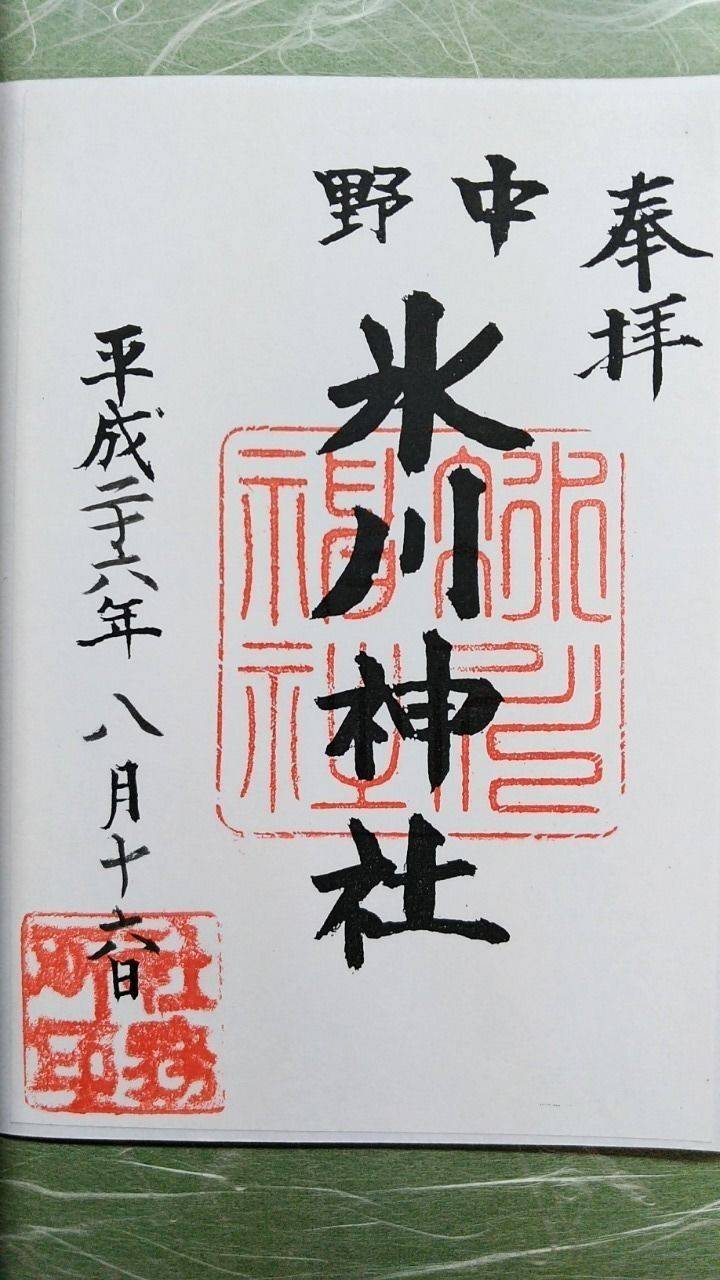 奉拝
中野
氷川神社
平成二十六年 八月十六日
氷川神社
社務所印